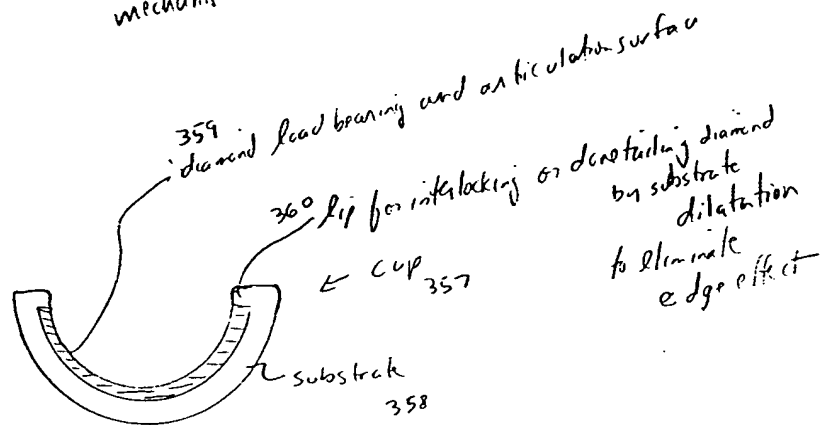 mechanis
359
diamond load bearing and articulation surface
360 lip for interlocking or dovetailing diamond
by substrate
dilatation
to eliminate
edge effect
← cup
357
substrate
358